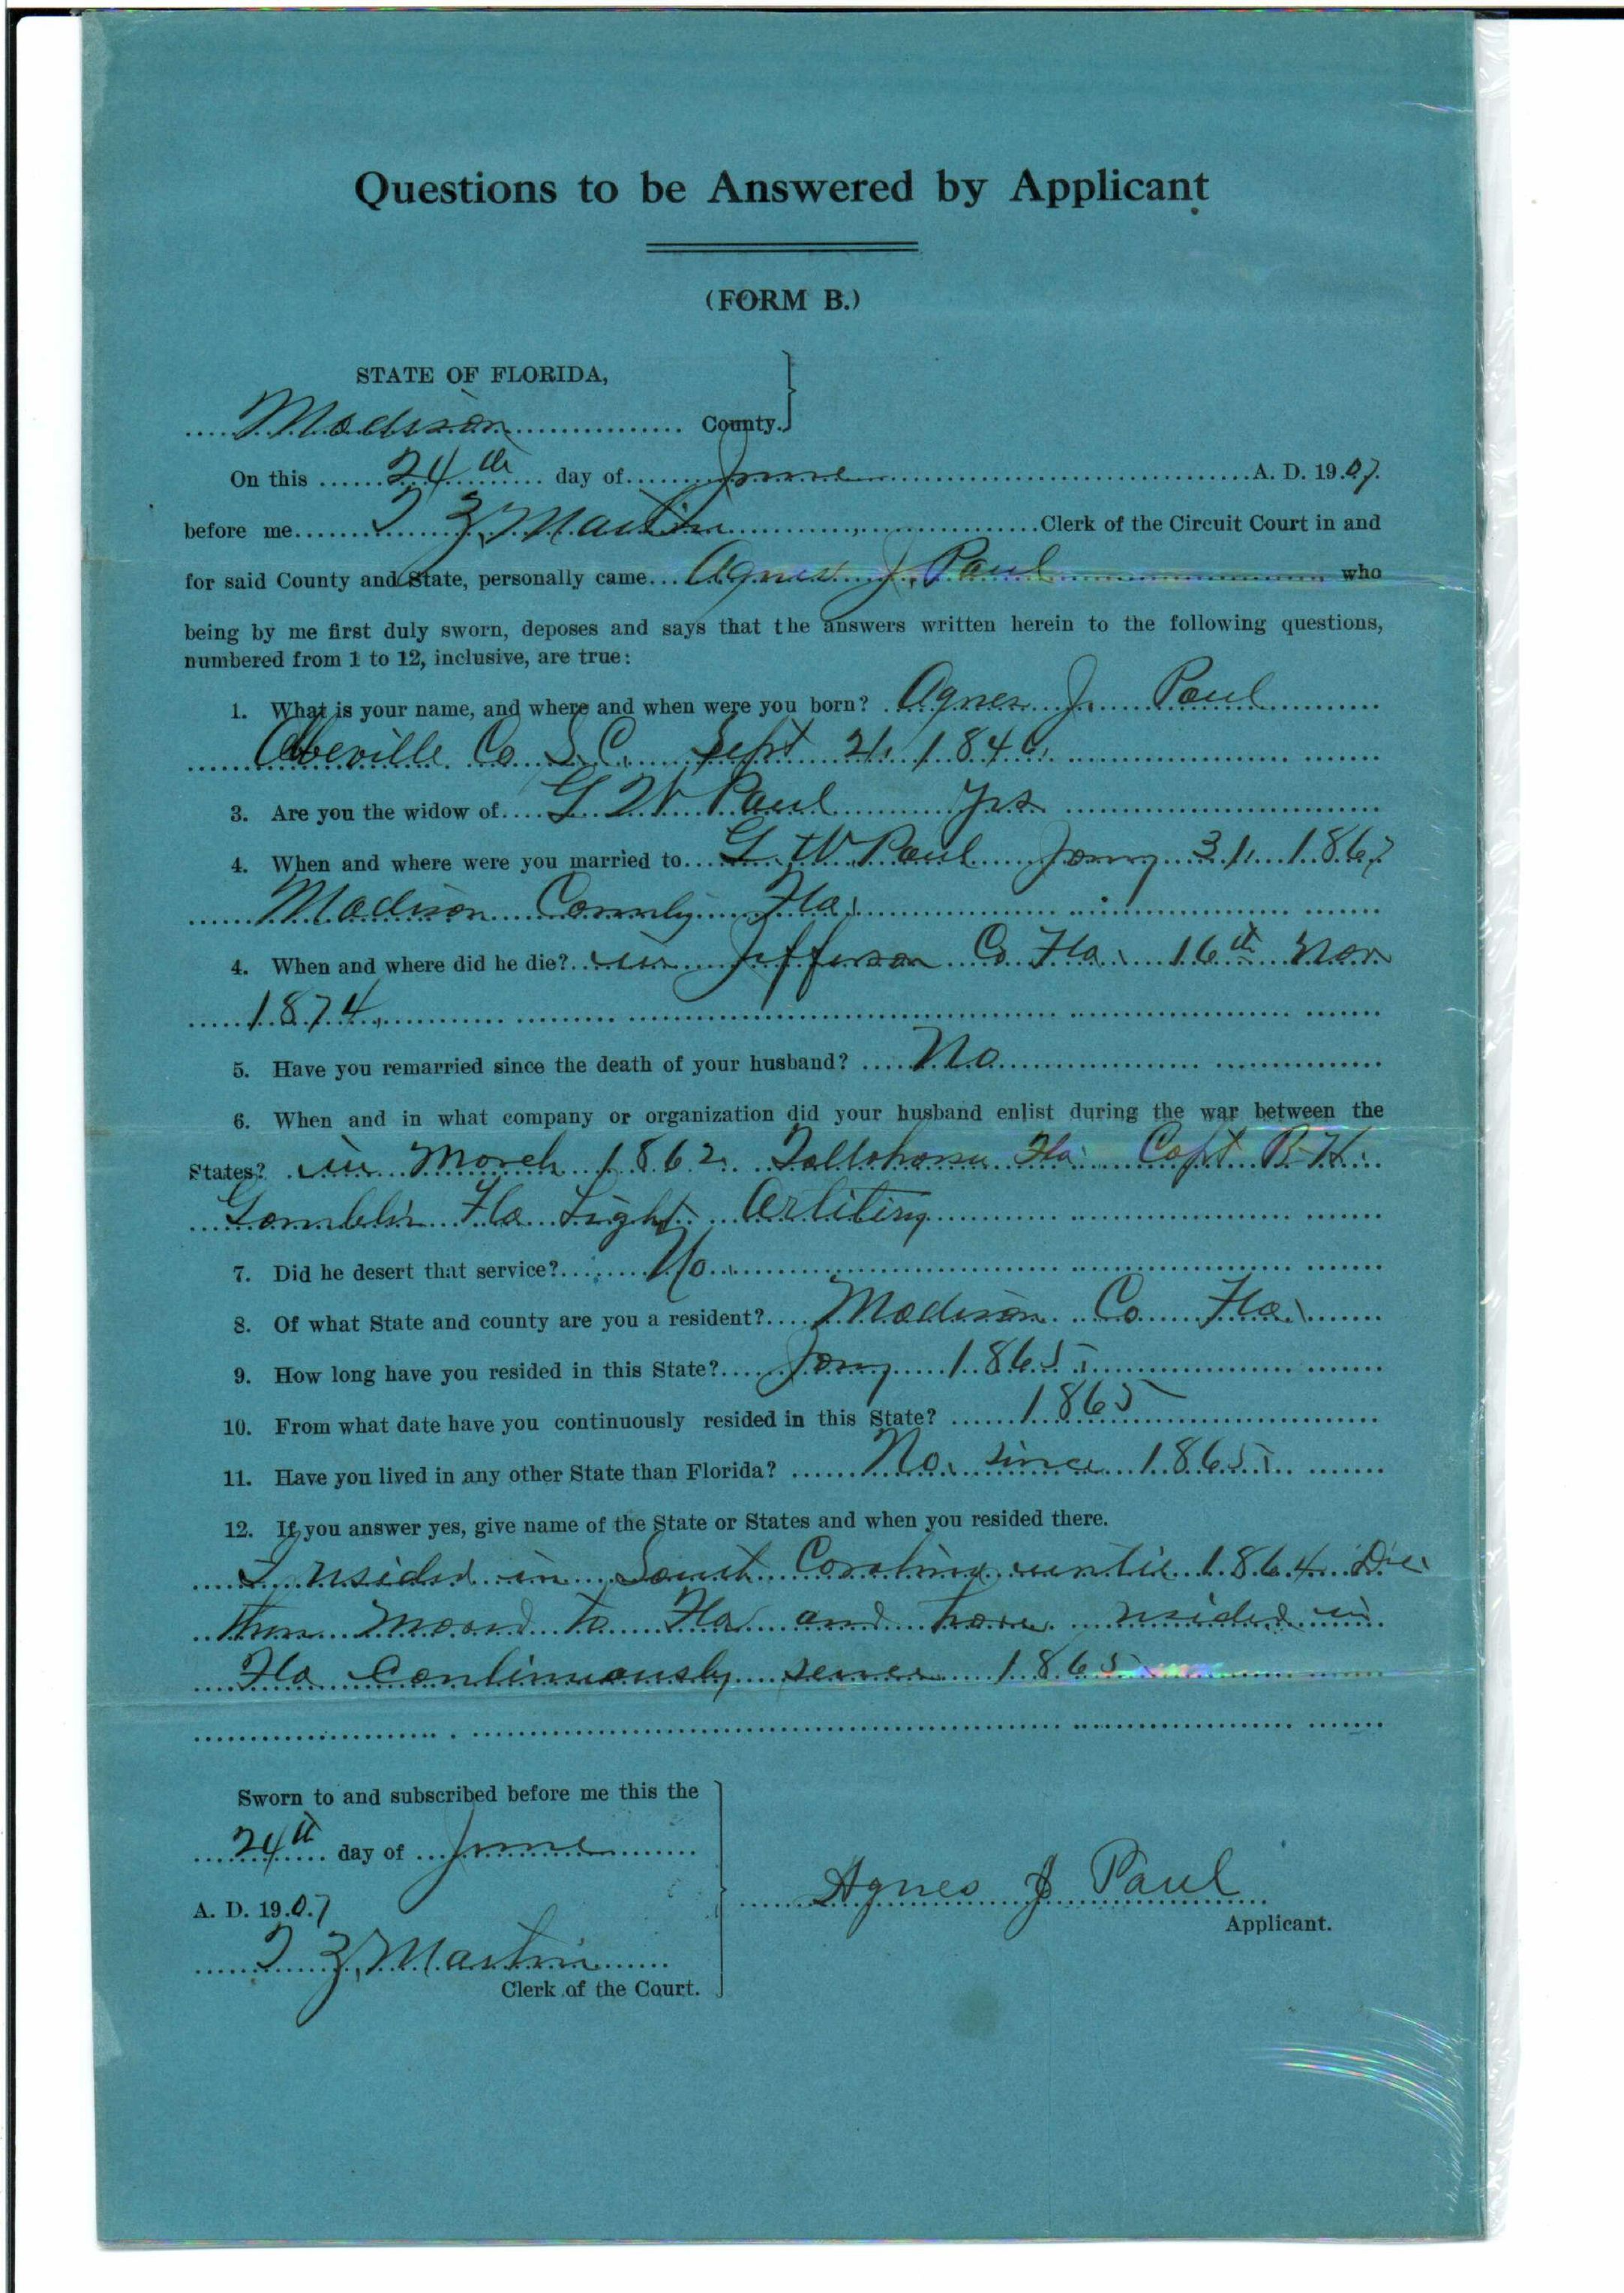 Questions to be Answered by Applicant
(FORM B.)
STATE OF FLORIDA,
Madison County.
On this 24th day of June A. D. 1907.
before me Martin Clerk of the Circuit Court in and
for said County and State, personally came Agnes J. Paul who
being by me first duly sworn, deposes and says that the answers written herein to the following questions,
numbered from 1 to 12, inclusive, are true:
1. What is your name, and where and when were you born? Agnes J. Paul
Abeville Co S.C. Sept 21. 1840.
3. Are you the widow of G W Paul yes
4. When and where were you married to G W Paul Jany 31. 1867
Madison County Fla.
4. When and where did he die? in Jefferson Co Fla. 16th Nov
1874.
5. Have you remarried since the death of your husband? No
6. When and in what company or organization did your husband enlist during the war between the
States? in March 1862. Fla. Capt R. H.
Fla Light
7. Did he desert that service? No.
8. Of what State and county are you a resident? Madison Co Fla.
9. How long have you resided in this State? Jany 1865
10. From what date have you continuously resided in this State? 1865
11. Have you lived in any other State than Florida? No. since 1865
12. If you answer yes, give name of the State or States and when you resided there.
I resided in South Carolina until 1864 Dec
then moved to Fla and have resided in
Fla Continuously since 1865
Sworn to and subscribed before me this the
24th day of June
A. D. 1907
Martin
Clerk of the Court.
Agnes J Paul
Applicant.